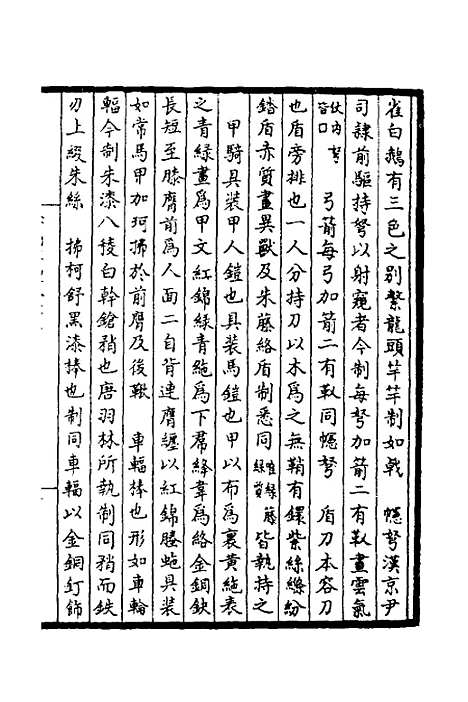 雀白鵝有三色之别繫龍頭竿竿制如戟　幰弩漢京尹
司隷前驅持弩以射窺者今制每弩加箭二有靫畫雲氣
仗內弩皆口　弓箭每弓加箭二有靫同幰弩　盾刀本容刀
也盾旁排也一人分持刀以木爲之無鞘有鐶紫絲絛紛
錔盾赤質畫異獸及朱藤絡盾制悉同惟綠藤綠質皆執持之
甲騎具裝甲人鎧也具裝馬鎧也甲以布爲裏黄絁表
之青綠畫爲甲文紅錦綠青絁爲下帬絳韋爲絡金銅鈌
長短至膝膺前爲人面二自背連膺纏以紅錦騰虵具裝
如常馬甲加珂拂於前膺及後鞦　車輻棒也形如車輪
輻今制朱漆八稜白幹鎗矟也唐羽林所執制同矟而鉄
刃上綴朱絲　拂柯舒黑漆捧也制同車輻以金銅釘飾